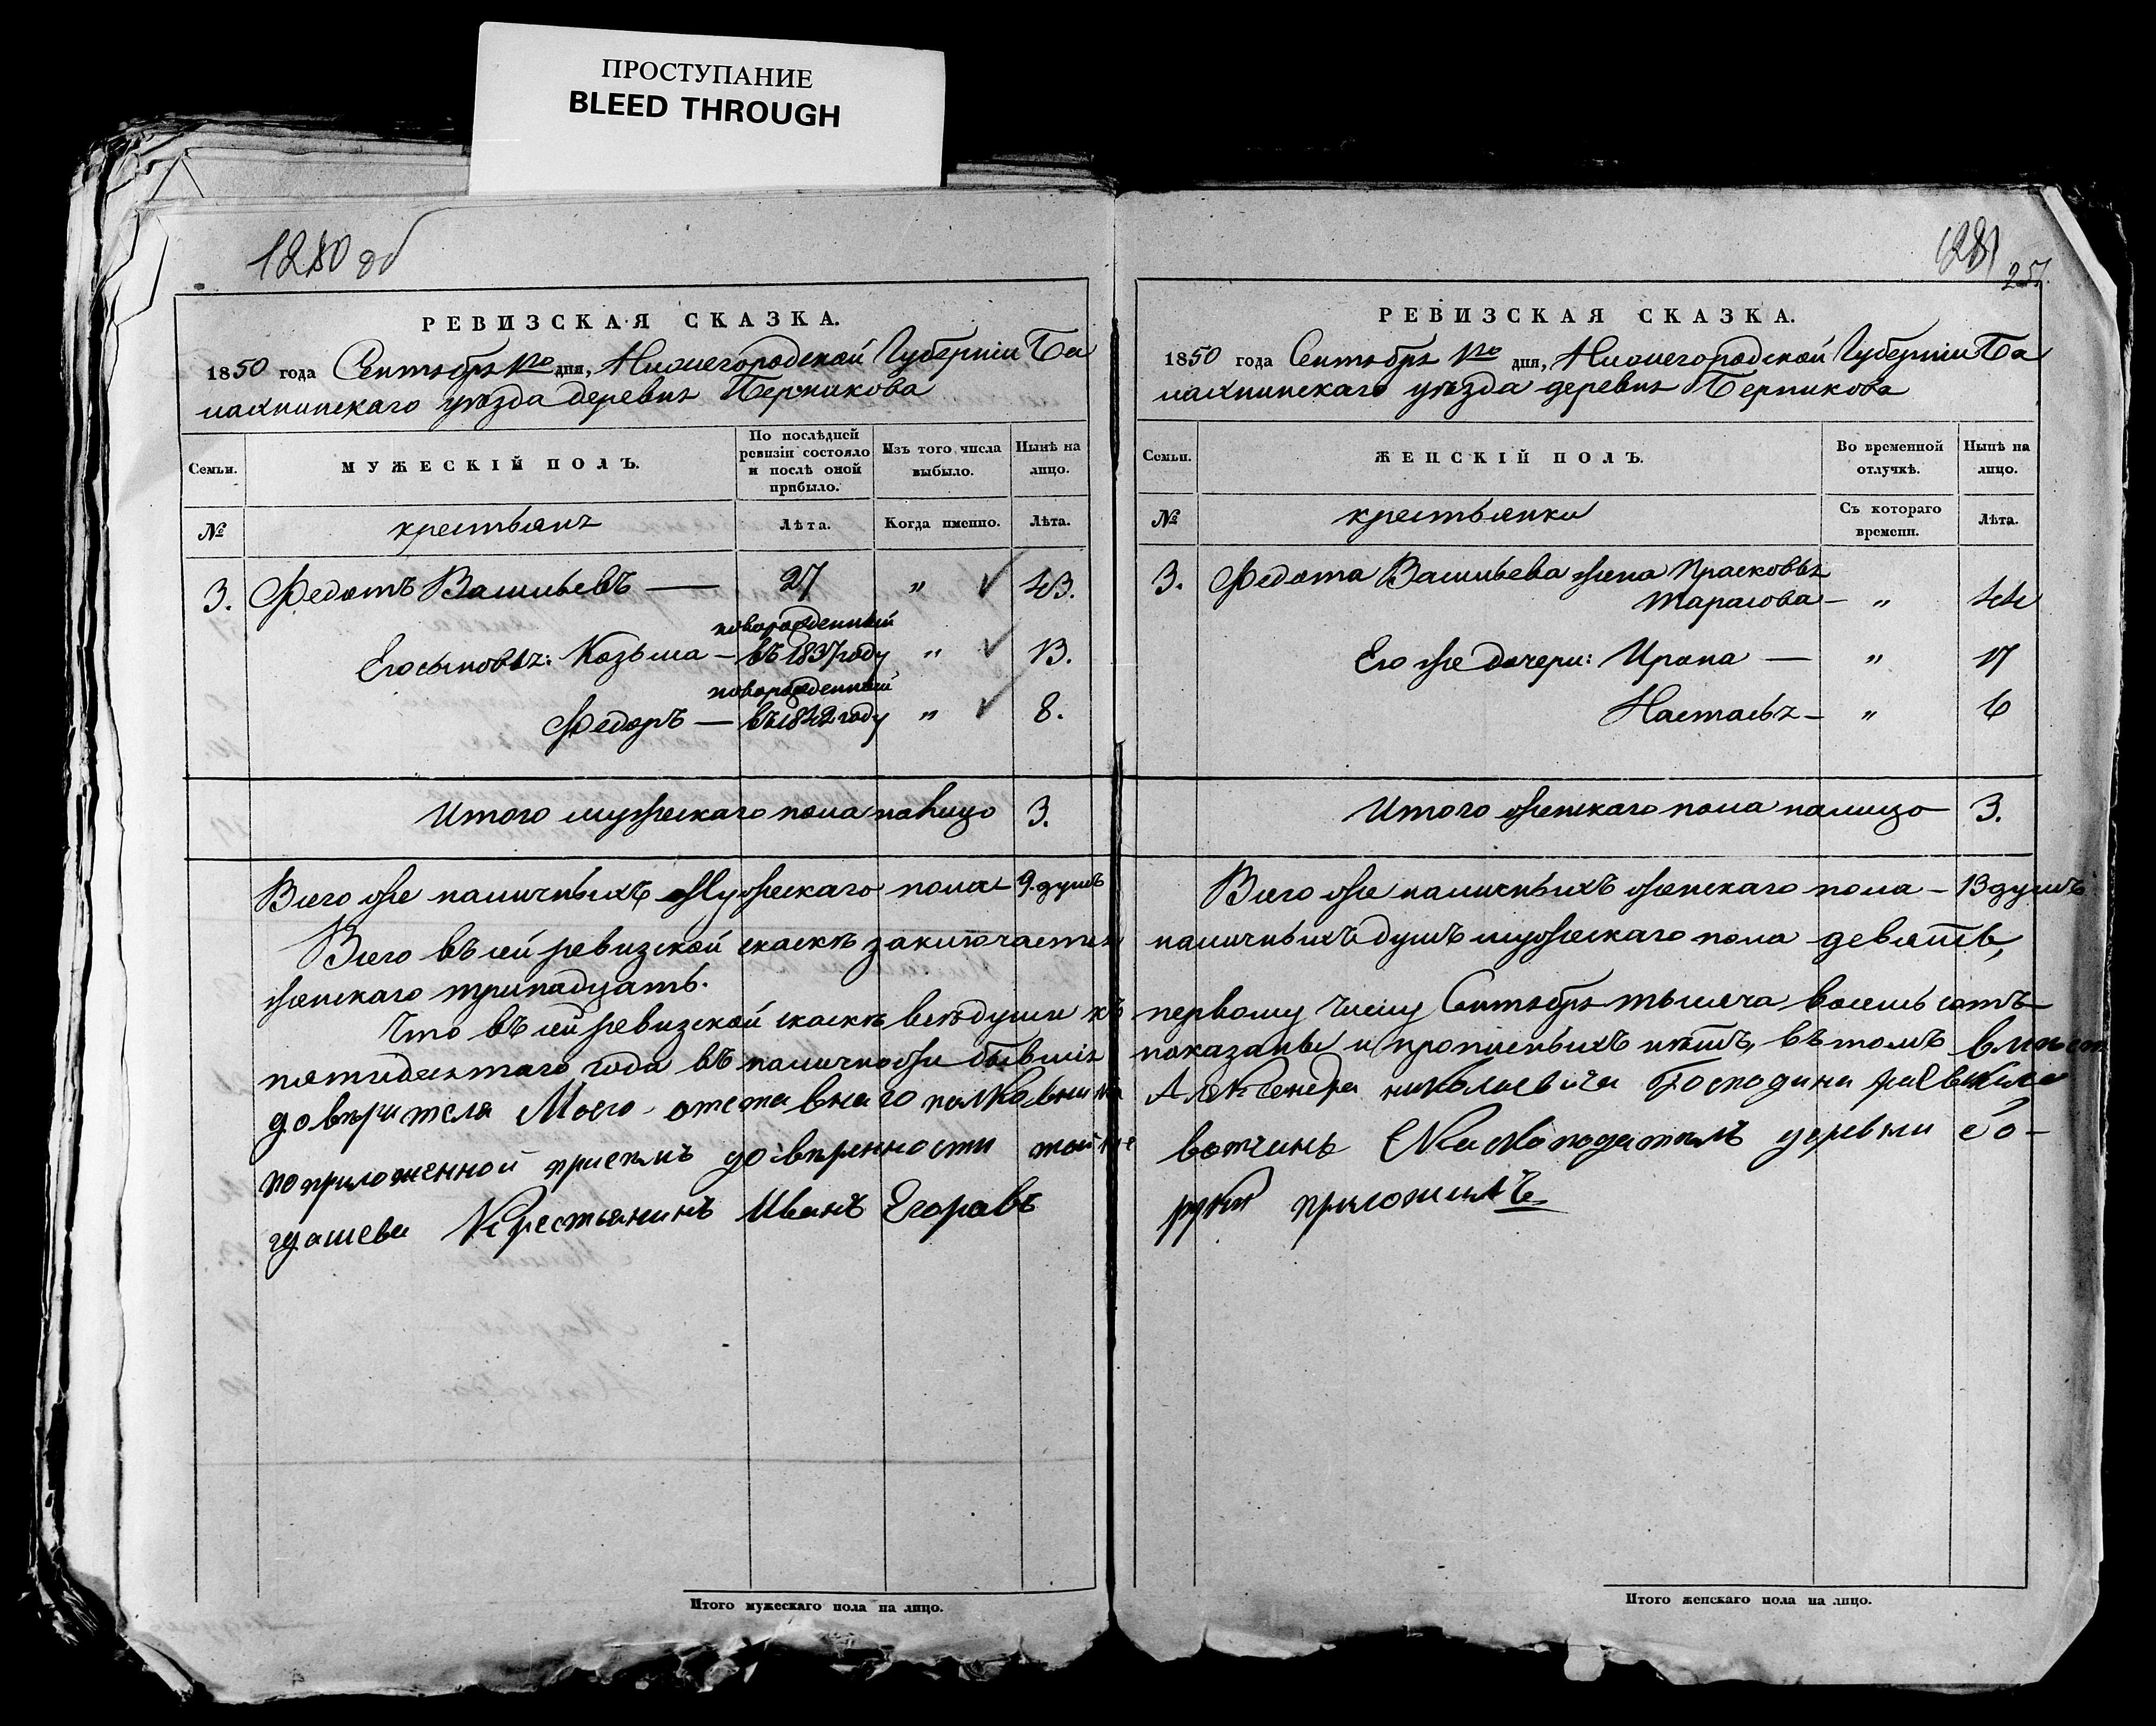 ПРОСТУПАНИЕ
BLEED THROUGH
1280 об
РЕВИЗСКАЯ СКАЗКА.
1850 года Сентября 1го дня, Нижегородской Губернiи Ба
лахнинскаго уѣзда деревня Берникова
Семьи.
МУЖЕСКIЙ ПОЛЪ.
По послѣдней ревизiи состояло и послѣ оной прибыло.
Изъ того числа выбыло.
Нынѣ на лицо.
№
крестьянъ
Лѣта.
Когда именно.
Лѣта.
3. Федотъ Васильевъ — 27 „ 43.
Его сыновья: Козьма — новорожденный въ 1837 году „ 13.
Федоръ — новорожденный въ 1842 году „ 8.
Итого мужескаго пола на лицо 3.
Всего же наличныхъ Мужескаго пола — 9. душъ
Всего въ сей ревизской скаскѣ заключается
женскаго тринадцать.
Что въ сей ревизской скаскѣ всѣ души къ
пятидесятаго года въ наличности бывшiя
довѣрителя Моего отставнаго полковника
поприложенной присемъ довѣренности той же
Крестьянинъ Иванъ Егоравъ
Итого мужескаго пола на лицо.
1281
257
РЕВИЗСКАЯ СКАЗКА.
1850 года Сентября 1го дня, Нижегородской Губернiи Ба
лахнинскаго уѣзда деревня Берникова
Семьи.
ЖЕНСКIЙ ПОЛЪ.
Во временной отлучкѣ.
Нынѣ на лицо.
№
крестьянки
Съ котораго времени.
Лѣта.
3. Федота Васильева жена Прасковья
Тарасова — „ 44
Его же дочери: Ирина — „ 17
Настасья — „ 6
Итого женскаго пола налицо 3.
Всего же наличныхъ женскаго пола — 13 душъ
наличныхъ душъ мужескаго пола девять,
первому числу Сентября тысяча восемь сотъ
показаны и прописныхъ нѣтъ, въ томъ вместо
Александра николаевича Господина
вотчины деревни бо-
руку приложилъ
Итого женскаго пола на лицо.